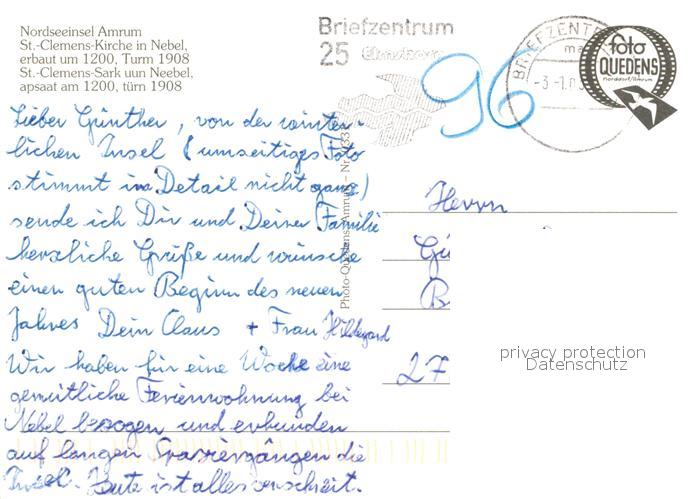 Nordseeinsel Amrum
St.-Clemens-Kirche in Nebel,
erbaut um 1200, Turm 1908
St.-Clemens-Sark uun Neebel,
apsaat am 1200, türn 1908
Briefzentrum
25
96
BRIEFZENT
foto
QUEDENS
Norddorf/Amrum
Lieber Günther, von der winter-
lichen Insel (umseitiges Foto
stimmt im Detail nicht ganz)
sende ich Dir und Deiner Familie
herzliche Grüße und wünsche
einen guten Beginn des neuen
Jahres Dein Claus + Frau Hildegard
Wir haben für eine Woche eine
gemütliche Ferienwohnung bei
Nebel bezogen und erkunden
auf langen Spaziergängen die
Insel. Heute ist alles verschneit.
Photo Quedens, Amrum – Nr.
Herrn
Gü
B
27
privacy protection
Datenschutz